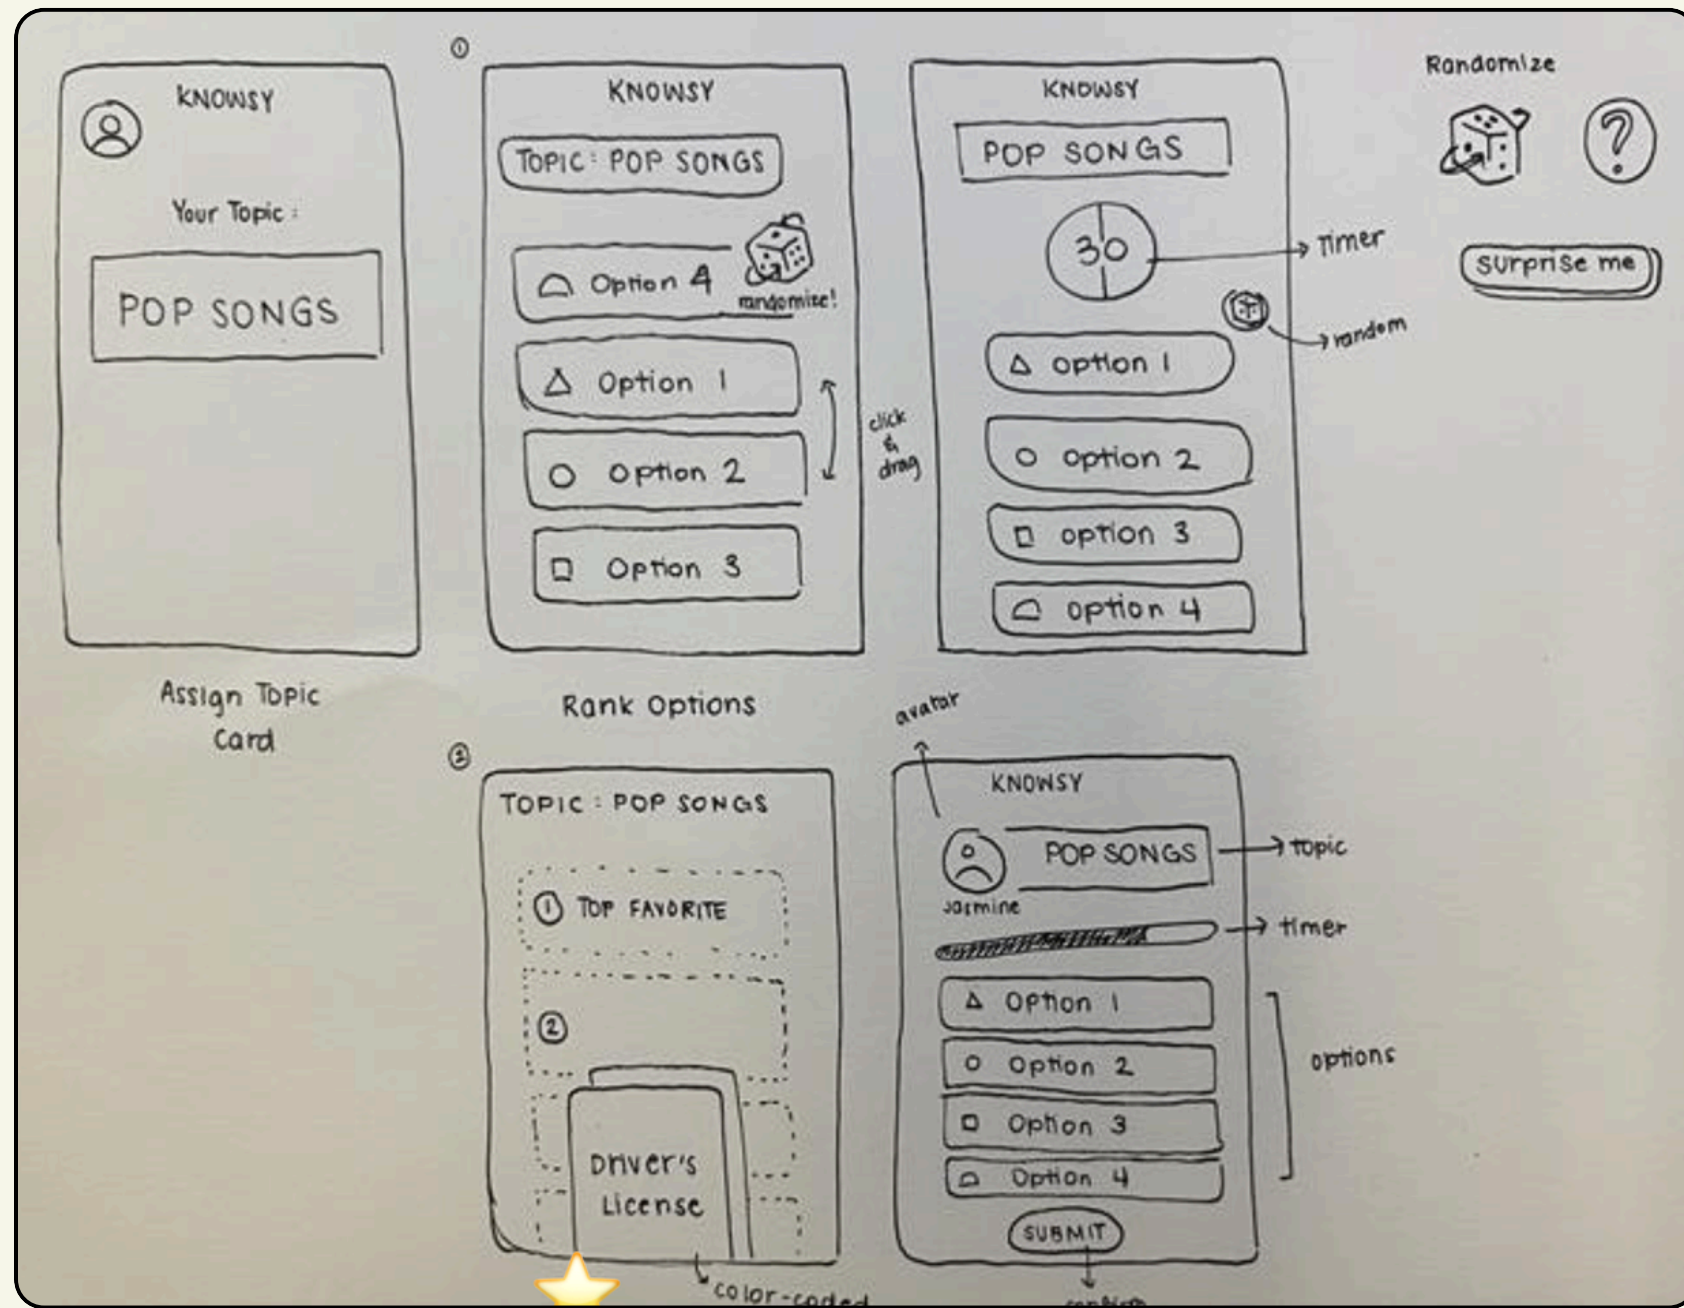 KNOWSY
Your Topic:
POP SONGS
Assign Topic
Card
①
KNOWSY
TOPIC: POP SONGS
Option 4
randomize!
Option 1
Option 2
Option 3
click
&
drag
Rank Options
KNOWSY
POP SONGS
30
Timer
random
Option 1
Option 2
option 3
option 4
Randomize
?
surprise me
②
TOPIC: POP SONGS
① TOP FAVORITE
②
Driver's
License
color-coded
avatar
KNOWSY
POP SONGS
topic
Jasmine
timer
Option 1
Option 2
Option 3
Option 4
options
SUBMIT